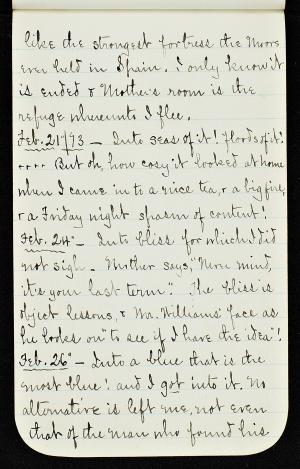 like the strongest fortress the Moors
ever held in Spain. I only know it
is ended & Mother's room is the
refuge whereunto I flee.
Feb. 21/73 — Into seas of it! floods of it!
.... But oh, how cosy it looked at home
when I came in to a nice tea, & a big fire,
& a Friday night spasm of content!
Feb. 24th — Into bliss for which I did
not sigh. Mother says, "Never mind,
it's your last term". The bliss is
object lessons, & Mr. Williams' face as
he looks on "to see if I have the idea"!
Feb. 26th — Into a blue that is the
most blue! and I got into it. No
alternative is left me, not even
that of the man who found his